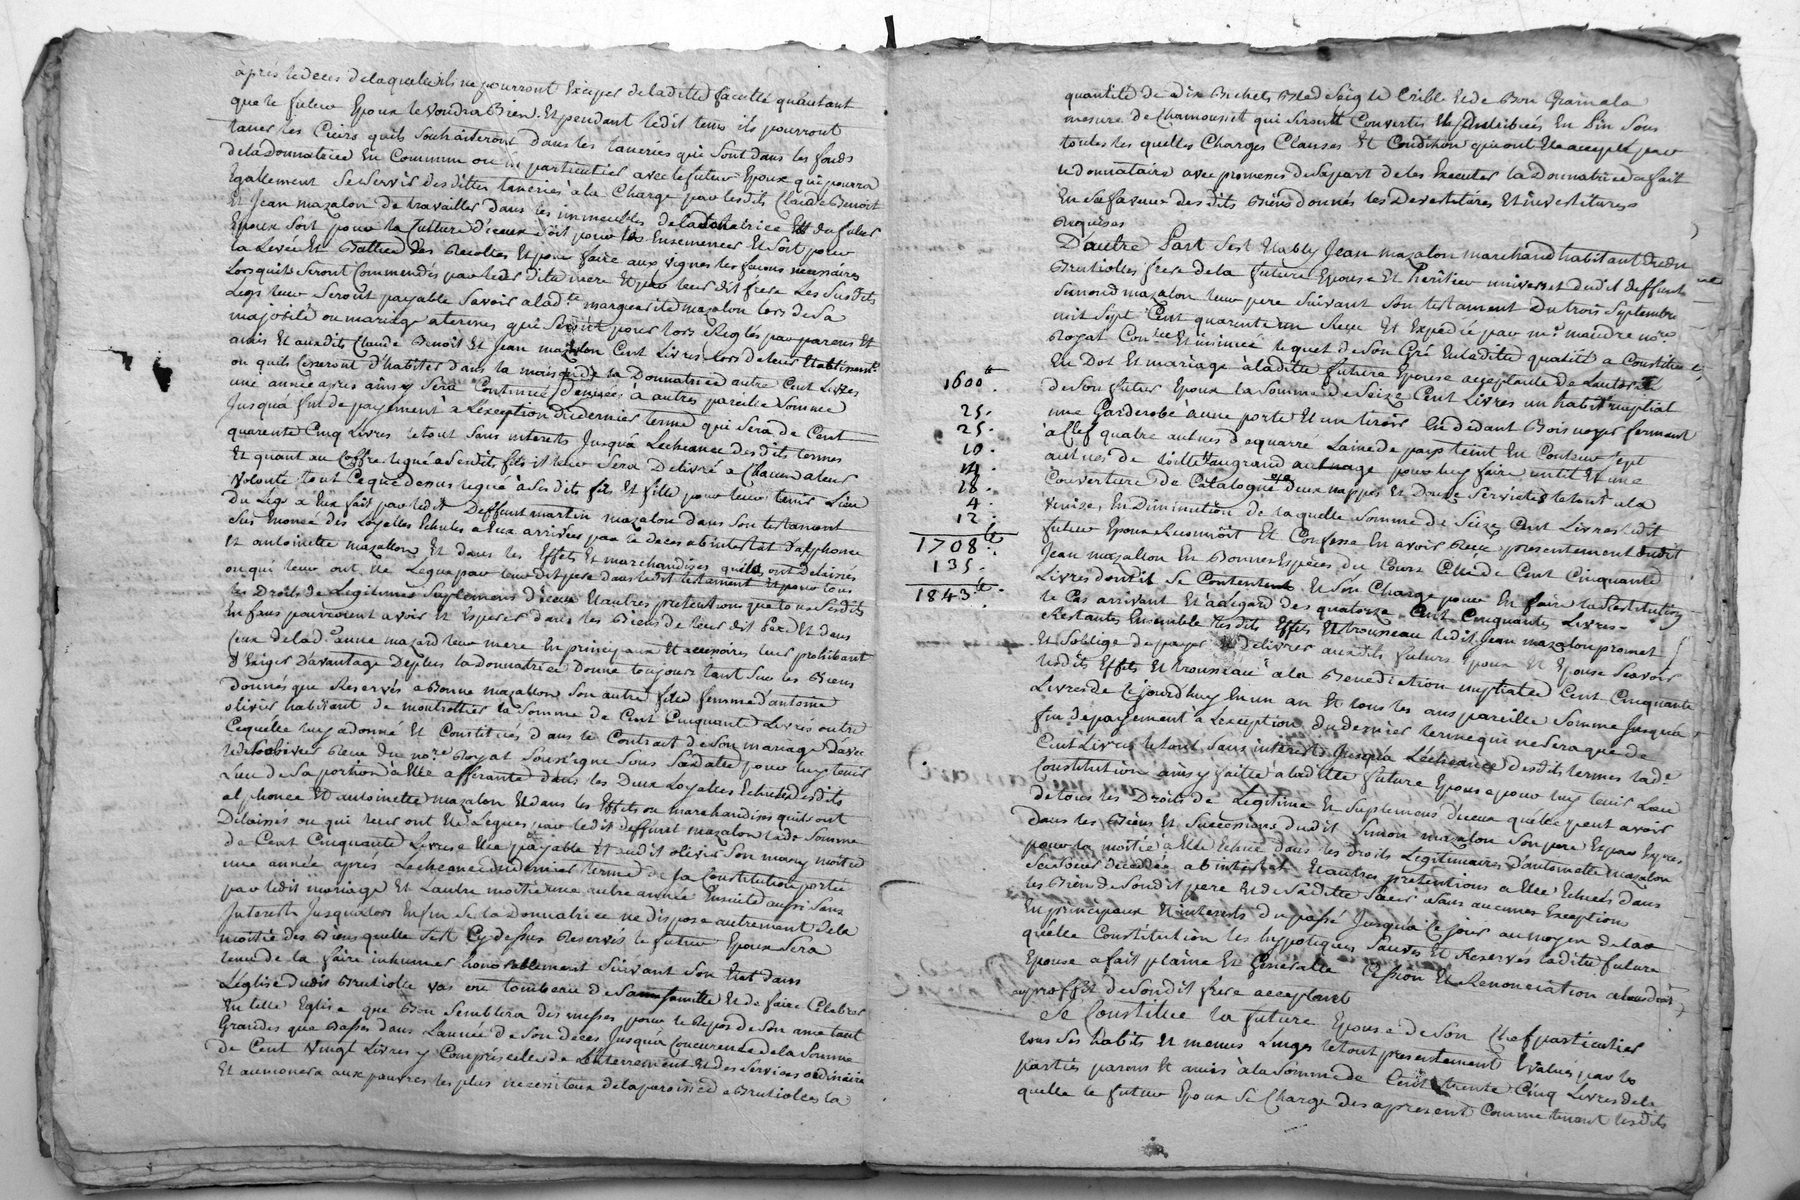 après le deces de laquelle ils ne pourront Exciper de laditte faculté qu'autant
que le futur Epoux le voudra Bien. Et pendant ledit tems ils pourront
taner les Cuirs quils souhaiteront dans les taneries qui sont dans les fonds
de la Donnatrice En Commun ou En particulier avec le futur Epoux qui pourra
Egallement se servir desdittes taneries à la Charge par lesdits Claude Benoit
Et Jean mazalon de travailler dans les immeubles de la donatrice Et du futur
Epoux soit pour la Culture d'iceux soit pour les Ensemencer Et soit pour
la Levée Et Battue des Recoltes Et pour faire aux vignes les façons necessaires
Lorsquils seront Commendés par leur ditte mere Et par leur dit frere Les susdits
Legs leur seront payable savoir à lad.te marguerite mazalon lors de sa
majorité ou mariage a termes qui seront pour lors Reglés par parens Et
amis Et auxdits Claude Benoit Et Jean mazalon Cent Livres lors de leur Etablissem.t
ou quils Cesseront d'habiter dans la maison de la Donnatrice autre Cent Livres
une année apres ainsy sera Continué d'années à autres pareille somme
Jusqu'à fin de payement à L'exception du dernier terme qui sera de Cent
quarente Cinq Livres le tout sans interets Jusqu'à Lecheance desdits termes
Et quant au Coffre legué a sesdits fils il leur sera Delivré a Chacun a leur
volonté tout Ce que dessus legué à sesdits fils Et fille pour leur tenir Lieu
du Legs a Eux fait par ledit Deffunt martin mazalon dans son testament
sus Enoncé des Loyalles Echutes a Eux arrivées par le deces abintestat d'alphonce
Et antoinette mazallon Et dans les Effets Et marchandises quils ont Delaissés
ou qui leur ont Eté Legué par leur dit pere dans ledit testament Et pour tous
les Droits de Legitimes suplemens d'iceux Et autres pretentions que tous sesdits
Enfans pourroient avoir Et Esperer dans les Biens de leur dit Pere Et dans
Ceux de lad.e anne mazard leur mere En principaux Et accessoires leur prohibant
d'Exiger d'avantage De plus la donnatrice Donne toujours tant sur les Biens
donnés que Reservés a Bonne mazallon son autre fille femme d'antoine
olivier habitant de montrottier la somme de Cent Cinquante Livres outre
Ce quelle luy a donné Et Constitués dans le Contract de son mariage d'avec
ledit olivier Receu du no.re Royal soussigné sous sa datte pour luy tenir
Lieu de sa portion à Elle afferante dans les Deux Loyalles Echutes desdits
alphonce Et antoinette mazalon Et dans les Effets ou marchandises quils ont
Delaissés ou qui leur ont Eté Legués par ledit deffunt mazalon lade somme
de Cent Cinquante Livres Elle payable Et audit olivier son mary moitié
une année après Lecheance du dernier terme de sa Constitution portée
par ledit mariage Et Lautre moitié une autre année Ensuite aussi sans
Interest Jusqu'alors Enfin si la Donnatrice ne dispose autrement de la
moitié des Biens quelle s'est Cy dessus Reservés le futur Epoux sera
tenu de la faire inhumer honorablement suivant son Etat dans
L'eglise dudit Brutiolle vas ou tombeau de sa famille Et de faire Celebrer
En telle Eglise que Bon semblera des messes pour le Repos de son ame tant
Grandes que Basses dans L'année de son deces Jusqu'à Concurence de la somme
de Cent Vingt Livres y Compris Celles de L'enterrement Et des services ordinaire
Et aumonera aux pauvres les plus necessiteux de la paroisse de Brutiolles la
quantité de dix Bichets Bled seigle Crible Et de Bon Grain a la
mesure de Chamousset qui seront Convertis Et distribués En Pin sous
toutes les quelles Charges Clauses Et Condition qui ont Eté acceptés par
le donnataire avec promesse de sa part de les Executer la donnatrice a fait
En sa faveur desdits Biens donnés les Devetitures Et investitures
Requises
D'autre Part s'est Etably Jean mazalon marchand habitant dudit
Brutiolles frere de la future Epouse Et heritier universel dudit deffunt
simond mazalon leur pere suivant son testament Du trois septembre
mil sept Cent quarente un Receu Et Expedié par m.e maudre no.re
Royal Con.llé Et insinué lequel de son Gré Enladite qualité a Constitué
En Dot Et mariage à laditte future Epouse acceptante de L'autorité
de son futur Epoux la somme de seize Cent Livres un habit nuptial
une Garderobe a une porte Et un tiroir En dedant Bois noyer fermant
a Clef quatre aulnes de quarré Laine de pays teint En Couleur sept
aulnes de toille au grand aulnage pour luy faire un lit Et une
Couverture de Catalogne deux nappes Et Douze serviettes le tout a la
venise, En Diminution de laquelle somme de seize Cent Livres ledit
futur Epoux Reconnoit Et Confesse En avoir Receu presentement dudit
Jean mazalon En Bonnes Especes du Cours Celle de Cent Cinquante
Livres dont il se Contente Et s'En Charge pour En faire la Restitution
le Cas arrivant Et à L'egard des quatorze Cent Cinquante Livres
Restantes Ensemble lesdits Effets Et trousseau ledit Jean mazalon promet
Et s'oblige de payer Et delivrer auxdits futurs Epoux Et Epouse sçavoir
lesdits Effets Et trousseau à la Benediction nuptialle Cent Cinquante
Livres de Cejourdhuy En un an Et tous les ans pareille somme Jusqu'à
fin de payement à L'exception du dernier terme qui ne sera que de
Cent Livres le tout sans interest Jusqu'à Lecheance desdits termes lade
Constitution ainsy faitte a laditte future Epouse pour luy tenir Lieu
de tous les Droits de Legitime Et suplemens d'iceux quelle peut avoir
dans les Biens Et successions dudit Simon mazalon son pere Et par Expres
pour la moitié à Elle Echue dans les droits Legitimaires d'antoinette mazalon
sa soeur decedée abintestat Et autres pretentions a Elle Echues dans
les Biens de sondit pere Et de sa ditte soeur sans aucunes Exceptions
En principaux Et interests du passé Jusqu'à Ce jour au moyen de la
quelle Constitution les hypoteques sauves Et Reservés laditte future
Epouse a fait plaine Et Generalle Cession Et Renonciation a tous droits
au proffit de sondit frere acceptant
Se Constitue la future Epouse de son Chef particulier
tous ses habits Et menus Linges le tout presentement Evalués par les
parties parens Et amis à la somme de Cent trente Cinq Livres de la
quelle le futur Epoux se Charge des apresent Comme tenant lesdits
1600 tt
25.
25.
10.
14.
18.
4.
12.
1708 tt
135.
1843 tt